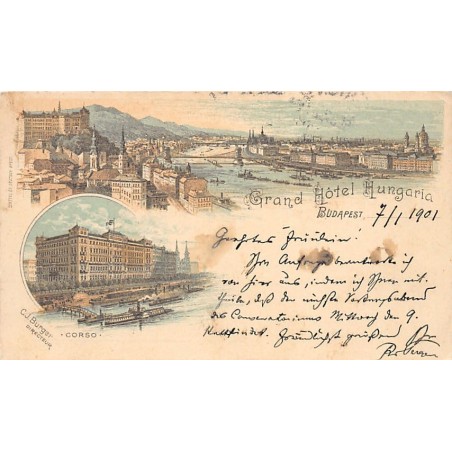 Grand Hôtel Hungaria
BUDAPEST. 7/1 1901
Geehrtes Fräulein!
Ihre Anfrage beantworte ich
von hier aus, indem ich Ihnen mit-
theile, daß der nächste Vortragsabend
des Conservatoriums Mittwoch den 9.
stattfindet. Freundlichst grüßend
C.J. Burger
DIRECTEUR
- CORSO -